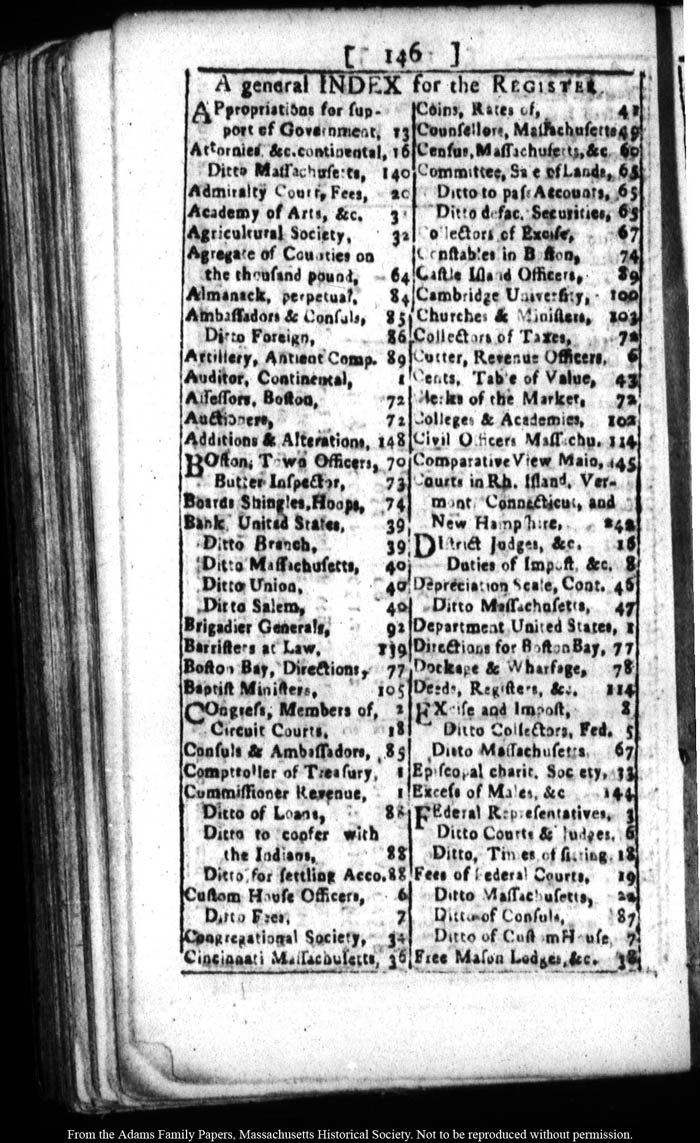 [ 146 ]
A general INDEX for the REGISTER.
APpropriations for sup-
port of Government, 13
Attornies, &c. continental, 16
Ditto Maſſachuſetts, 140
Admiralty Court, Fees, 20
Academy of Arts, &c. 3
Agricultural Society, 32
Agregate of Counties on
the thouſand pound, 64
Almanack, perpetual, 84
Ambaſſadors & Conſuls, 85
Ditto Foreign, 86
Artillery, Antient Comp. 89
Auditor, Continental, 1
Aſſeſſors, Boſton, 72
Auctioners, 72
Additions & Alterations, 148
BOſton, Town Officers, 70
Butter Inſpector, 73
Boards Shingles, Hoops, 74
Bank, United States, 39
Ditto Branch, 39
Ditto Maſſachuſetts, 40
Ditto Union, 40
Ditto Salem, 40
Brigadier Generals, 92
Barriſters at Law, 139
Boſton Bay, Directions, 77
Baptiſt Miniſters, 105
COngreſs, Members of, 2
Circuit Courts, 18
Conſuls & Ambaſſadors, 85
Comptroller of Treaſury, 1
Commiſſioner Revenue, 1
Ditto of Loans, 88
Ditto to confer with
the Indians, 88
Ditto for ſettling Acco. 88
Cuſtom Houſe Officers, 6
Ditto Fees, 7
Congregational Society, 34
Cincinnati Maſſachuſetts, 36
Coins, Rates of, 41
Counſellors, Maſſachuſetts 49
Cenſus, Maſſachuſetts, &c. 60
Committee, Sale of Lands, 65
Ditto to paſs Accounts, 65
Ditto defac. Securities, 65
Collectors of Exciſe, 67
Conſtables in Boſton, 74
Caſtle Iſland Officers, 89
Cambridge Univerſity, 100
Churches & Miniſters, 103
Collectors of Taxes, 72
Cutter, Revenue Officers, 6
Cents, Table of Value, 43
Clerks of the Market, 72
Colleges & Academies, 102
Civil Officers Maſſachu. 114
Comparative View Main, 145
Courts in Rh. Iſland, Ver-
mont, Connecticut, and
New Hampſhire, 242
DIſtrict Judges, &c. 16
Duties of Impoſt, &c. 8
Depreciation Scale, Cont. 46
Ditto Maſſachuſetts, 47
Department United States, 1
Directions for Boſton Bay, 77
Dockage & Wharfage, 78
Deeds, Regiſters, &c. 114
EXciſe and Impoſt, 8
Ditto Collectors, Fed. 5
Ditto Maſſachuſetts 67
Epiſcopal charit. Society, 33
Exceſs of Males, &c 144
FEderal Repreſentatives, 3
Ditto Courts & Judges, 6
Ditto, Times of ſitting. 18
Fees of Federal Courts, 19
Ditto Maſſachuſetts, 22
Ditto of Conſuls, 87
Ditto of Cuſtom Houſe, 7
Free Maſon Lodges, &c. 38
From the Adams Family Papers, Massachusetts Historical Society. Not to be reproduced without permission.